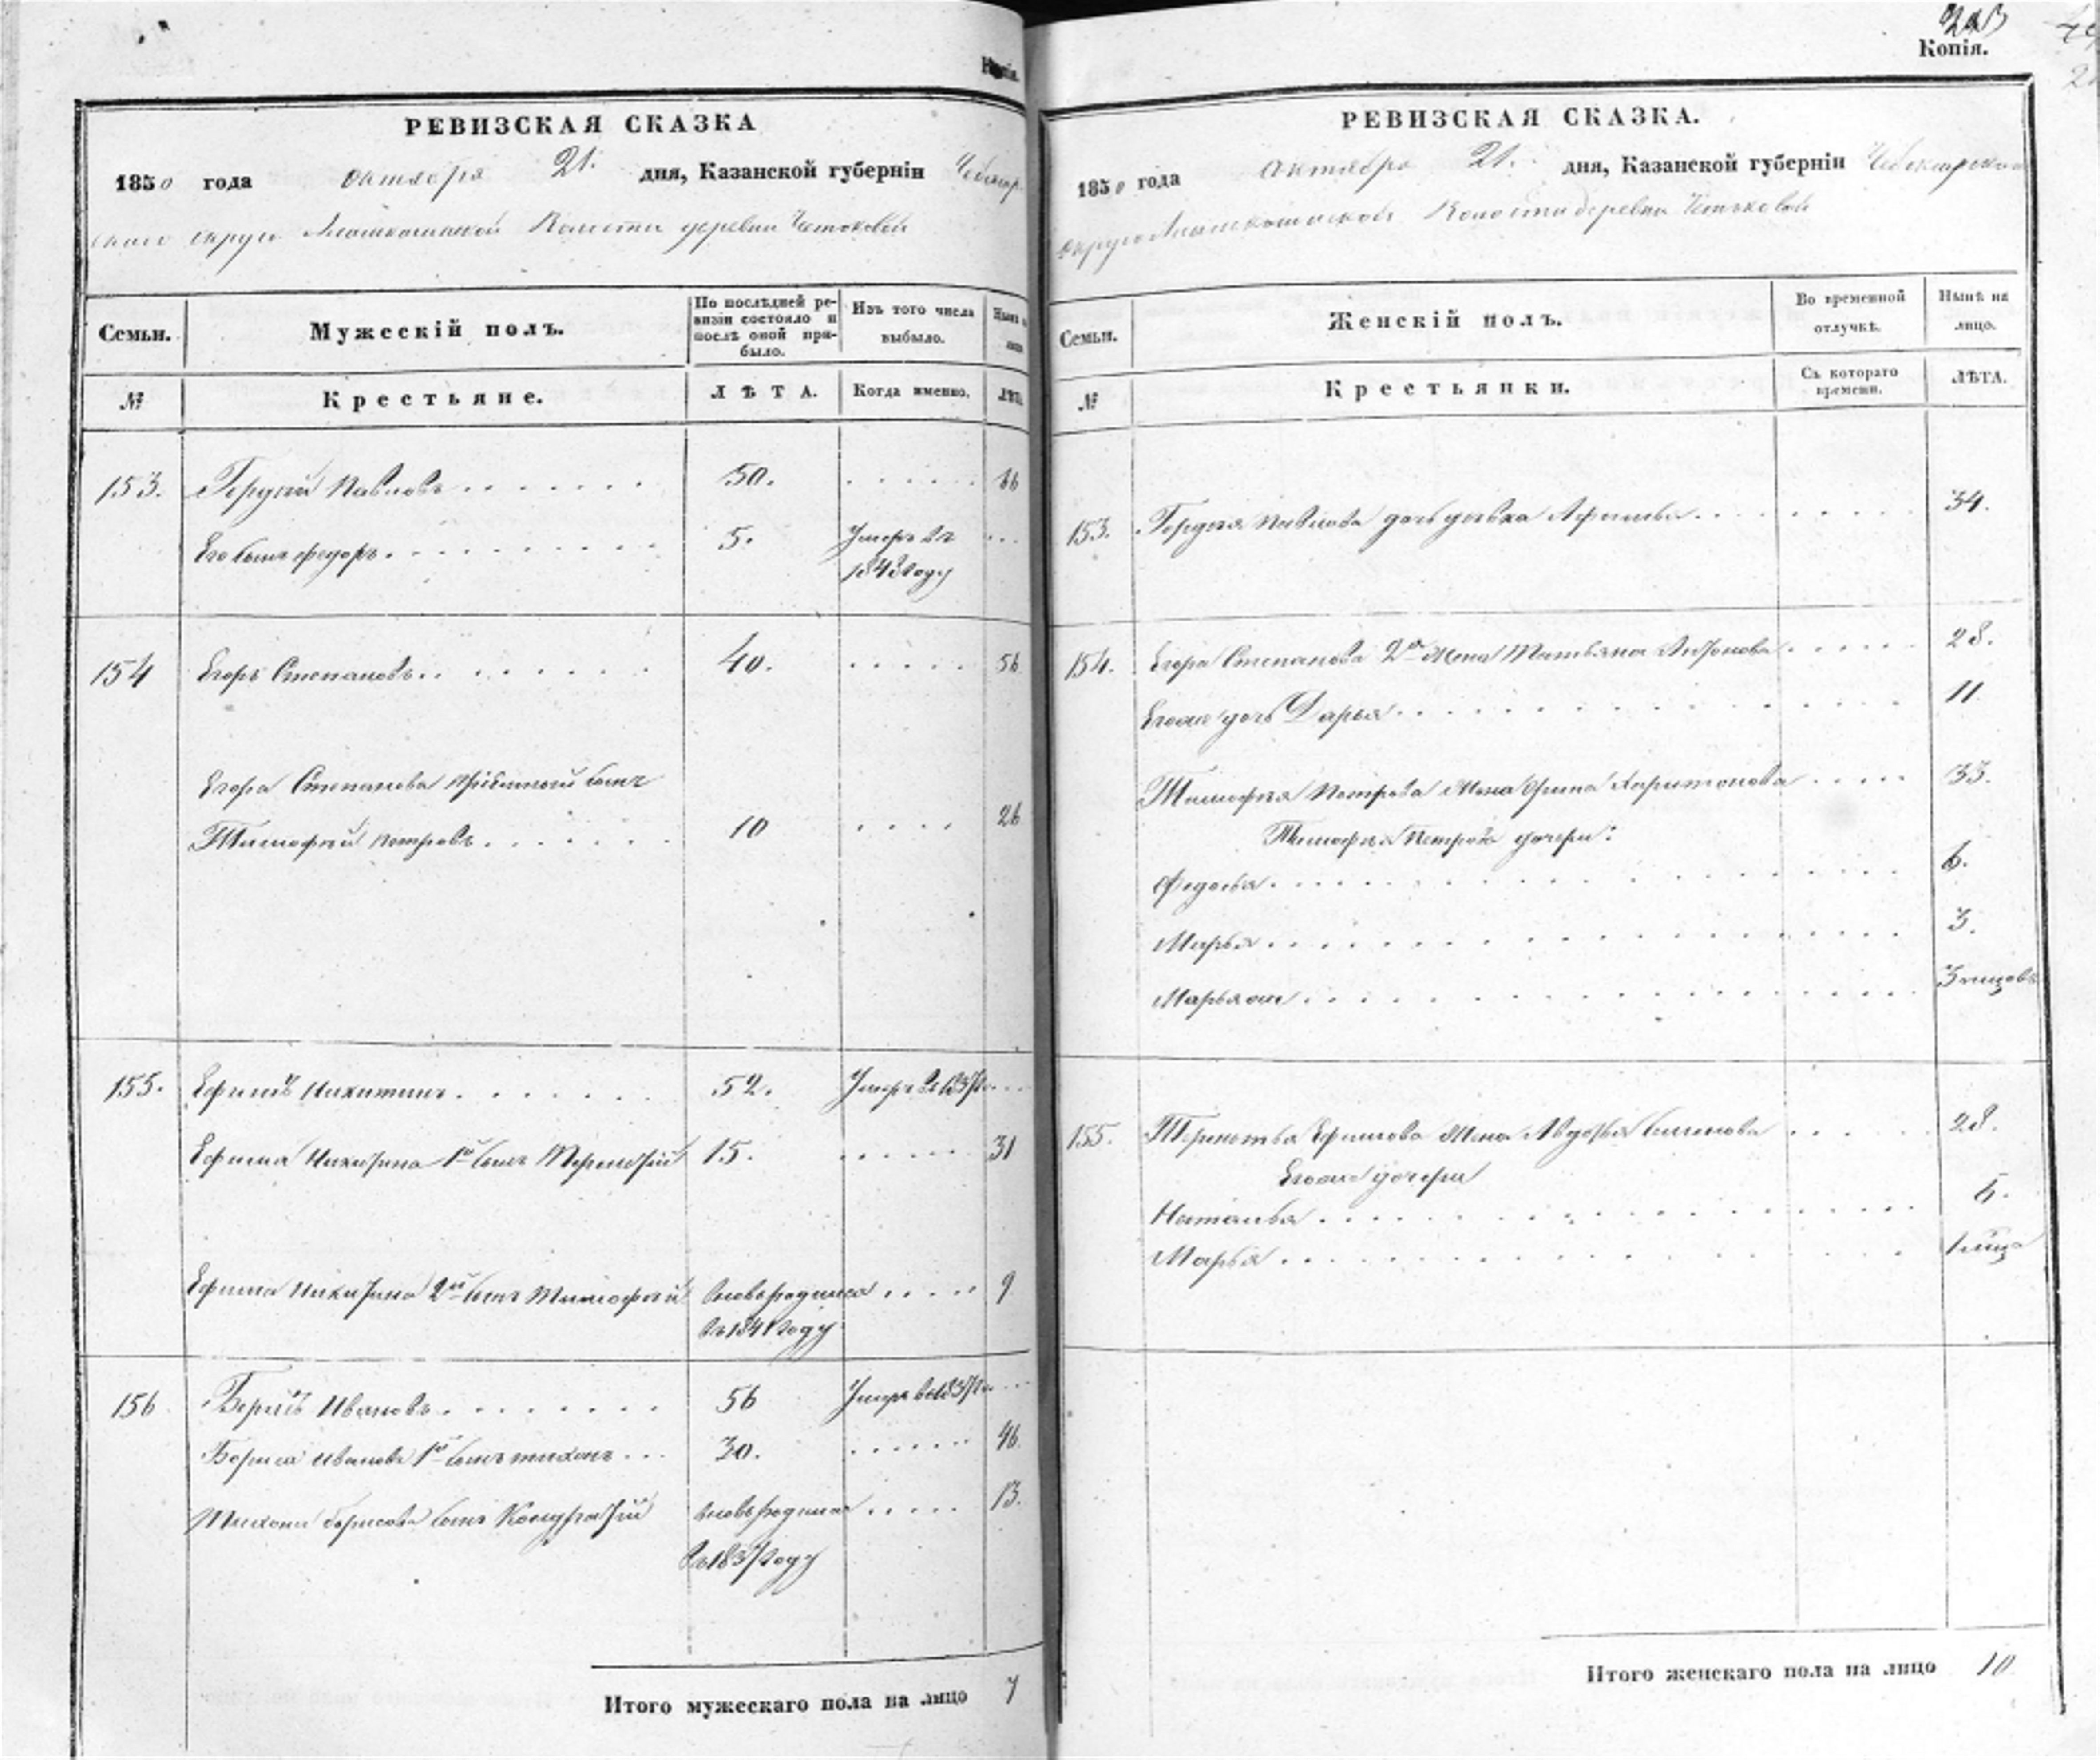 Копія.
РЕВИЗСКАЯ СКАЗКА
1850 года октября 21. дня, Казанской губерніи Чебоксар
скаго округа Волости деревни
Семьи.
Мужескій полъ.
По послѣдней ре-
визіи состояло и
послѣ оной при-
было.
Изъ того числа
выбыло.
Нынѣ
№
Крестьяне.
ЛѢТА.
Когда именно.
ЛѢТА
153. Гордѣй Павловъ 50. 66
Его сынъ Федоръ 5. Умеръ въ
1843 году
154 Егоръ Степановъ 40. 56
Егора Степанова сынъ
Тимофѣй Петровъ 10 26
155. Ефимъ Никитинъ 52. Умеръ въ 1837
Ефима Никитина 1й сынъ Терентій 15. 31
Ефима Никитина 2й сынъ Тимофѣй вновь родился 9
въ 1841 году
156 Борисъ Ивановъ 56 Умеръ въ 1837
Бориса Иванова 1й сынъ Тихонъ 30. 46
Тихона Борисова сынъ Кондратій вновь родился 13.
въ 1837 году
Итого мужескаго пола на лицо 7
Копія.
РЕВИЗСКАЯ СКАЗКА.
1850 года октября 21. дня, Казанской губерніи Чебоксарскаго
округа Волости деревни
Семьи.
Женскій полъ.
Во временной
отлучкѣ.
Нынѣ на
лицо.
№
Крестьянки.
Съ котораго
времени.
ЛѢТА.
153. Гордѣя Павлова дочь девка 34.
154. Егора Степанова 2я жена Татьяна Антонова 28.
Егоже дочь Дарья 11.
Тимофѣя Петрова жена Ирина Харитонова 33.
Тимофѣя Петрова дочери:
Федосья 6.
Марья 3.
Марья же 3 месяцовъ
155. Терентья Ефимова жена Авдотья Семенова 28.
Егоже дочери
Наталья 5.
Марья 1 месяца
Итого женскаго пола на лицо 10